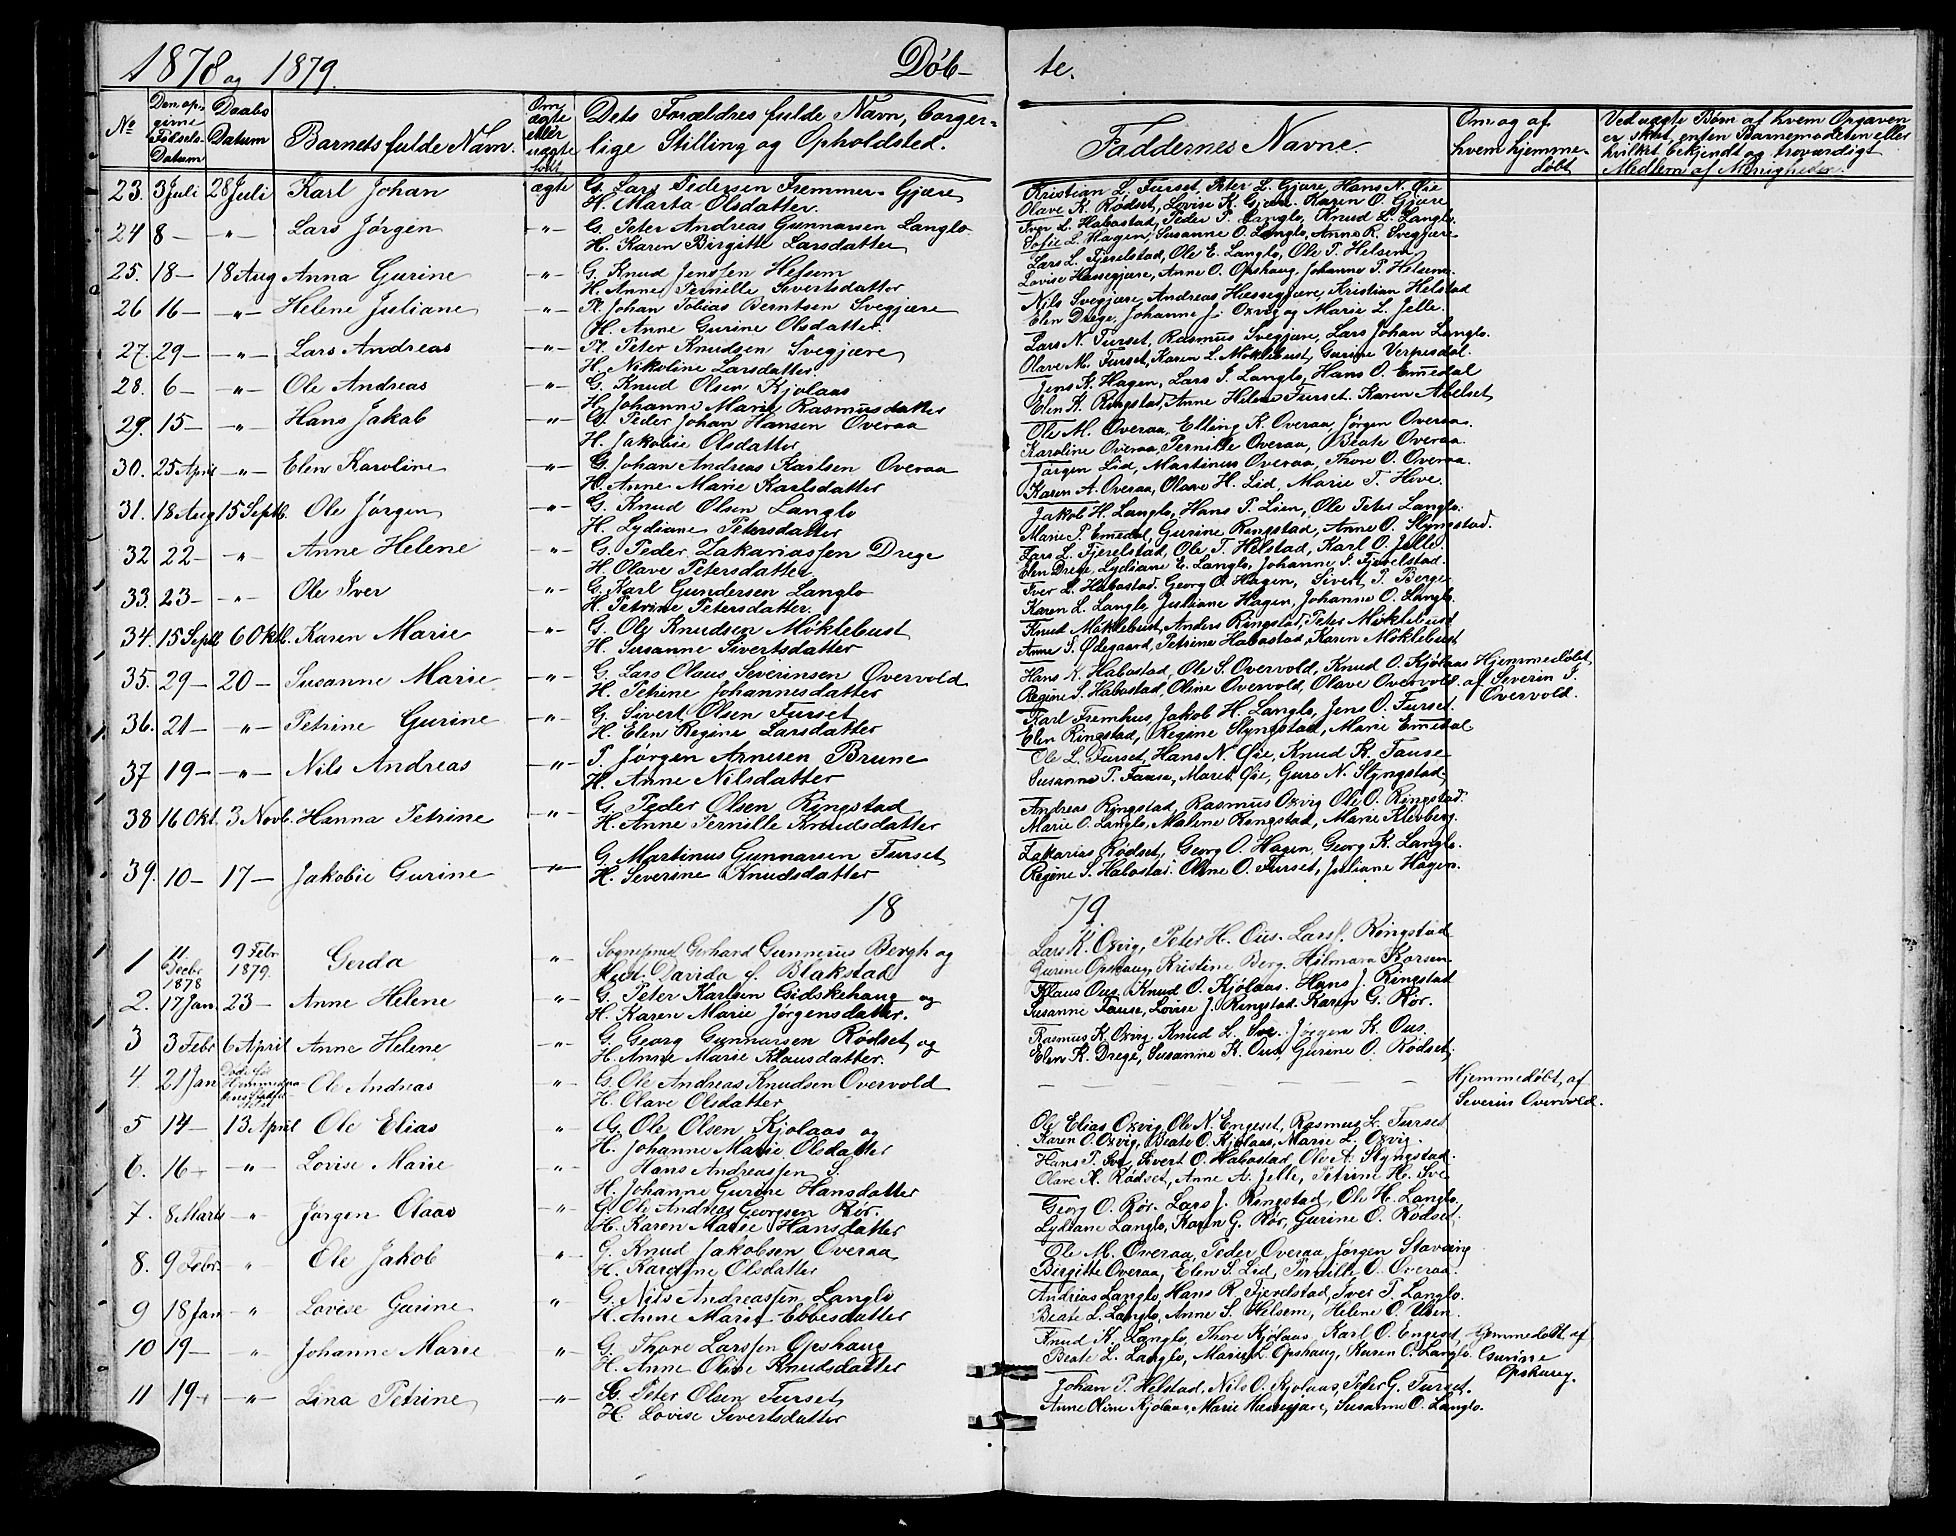 1878 og 1879.
Døb-
te.
No
Den opgivne Fødsels-Datum
Daabs Datum
Barnets fulde Navn.
Om ægte eller uægte født
Dets Forældres fulde Navn, borgerlige Stilling og Opholdsted.
Faddernes Navne.
Om og af hvem hjemmedøbt
Ved uægte Børn af hvem Opgaven er skeet, enten Barnemoderen eller hvilket bekjendt og troværdigt Medlem af Menigheden.
23. 3 Juli 28 Juli Karl Johan ægte G. Lars Pedersen Fremmer-Gjære Kristian L. Furset, Peter L. Gjære, Hans N. Øie
H. Marta Olsdatter. Olave K. Rødset, Lovise K. Gjære. Karen O. Gjære
24 8 - -"- Lars Jørgen -"- G. Peter Andreas Gunnarsen Langlo Iver L. Habostad, Peder P. Langlo, Knud L. Langlo.
H. Karen Birgitte Larsdatter Sofie L. Hagen, Susanne O. Langlo, Anne R. Svegjære
25. 18 - 18 Aug Anna Gurine -"- G. Knud Jenssen Helsem Lars L. Fjerelstad, Ole E. Langlo, Ole T. Helsem,
H. Anne Pernille Sivertsdatter Lovise Hæssegjære, Anne O. Opshaug, Johanne P. Helsem.
26 16 - -"- Helene Juliane -"- Pl. Johan Tobias Berntsen Svegjære Nils Svegjære, Andreas Hæssegjære, Kristian Helstad
H. Anne Gurine Olsdatter. Elen Drege, Johanne J. Oxvig og Marie L. Jelle.
27. 29 - -"- Lars Andreas -"- Pl. Peter Knudsen Svegjære Lars N. Furset, Rasmus Svegjære, Lars Johan Langlo.
H. Nikoline Larsdatter Olave M. Furset, Karen L. Møklebust, Gurine Verpesdal.
28. 6 - -"- Ole Andreas -"- G. Knud Olsen Kjølaas Jens K. Hagen, Lars J. Langlo, Hans O. Emedal
H. Johanne Marie Rasmusdatter Elen K. Ringstad, Anne Helene Furset. Karen Abelset
29. 15 - -"- Hans Jakob -"- G. Peder Johan Hansen Overaa Ole M. Overaa, Elling K. Overaa, Jørgen Overaa.
H. Jakobie Olsdatter Karoline Overaa, Pernille Overaa, Beate Overaa.
30. 25 April -"- Elen Karoline -"- G. Johan Andreas Karlsen Overaa Jørgen Lid, Martinus Overaa, Thore O. Overaa.
H. Anne Marie Karlsdatter Karen A. Overaa, Olave H. Lid, Marie T. Hove.
31. 18 Aug 15 Septb. Ole Jørgen -"- G. Knud Olsen Langlo Jakob H. Langlo, Hans P. Lien, Ole Peter Langlo.
H. Lydiane Petersdatter Marie P. Emedal, Gurine Ringstad, Anne O. Slyngstad.
32 22 - -"- Anne Helene -"- G. Peder Zakariassen Drege Lars L. Fjerelstad, Ole T. Helstad, Karl O. Jelle.
H. Olave Petersdatter Elen Drege, Lydiane E. Langlo, Johanne S. Fjerelstad.
33. 23 - -"- Ole Iver -"- G. Karl Gundersen Langlo Iver L. Habostad, Georg O. Hagen, Sivert P. Berge
H. Petrine Petersdatter. Karen L. Langlo, Juliane Hagen, Johanne O. Langlo.
34. 15 Septb 6 Oktb. Karen Marie -"- G. Ole Knudsen Møklebust Knud Møklebust, Anders Ringstad, Peter Møklebust
H. Susanne Sivertsdatter Anne S. Ødegaard, Petrine Habostad, Karen Møklebust
35. 29 - 20 - Susanne Marie -"- G. Lars Olaus Severinsen Overvold Hans K. Habostad, Ole S. Overvold, Knud O. Kjølaas Hjemmedøbt
H. Petrine Johannesdatter Regine S. Habostad, Oline Overvold, Olave Overvold. af Severin S. Overvold.
36. 21 - -"- Petrine Gurine -"- G. Sivert Olsen Furset Karl Fremhus, Jakob H. Langlo, Jens O. Furset.
H. Elen Regine Larsdatter Elen Ringstad, Regine Slyngstad, Marie Emedal
37 19 - -"- Nils Andreas -"- P. Jørgen Arnesen Brune Ole L. Furset, Hans N. Øie, Knud K. Fause
H. Anne Nilsdatter Susanne P. Fause, Maret Øie, Guro N. Slyngstad,
38 16 Okt. 3 Novb. Hanna Petrine -"- G. Peder Olsen Ringstad Andreas Ringstad, Rasmus Oxvig Ole O. Ringstad.
H. Anne Pernille Knudsdatter Marie O. Langlo, Malene Ringstad, Marie Kleberg.
39. 10 - 17 - Jakobie Gurine -"- G. Martinus Gunnarsen Furset Zakarias Rødset, Georg O. Hagen, Georg K. Langlo.
H. Severine Knudsdatter Regine S. Habostad. Oline O. Furset, Juliane Hagen.
18 79.
1 11 Decbr 1878 9 Febr. 1879. Gerda " Sogneprest Gerhard Gunnerius Bergh og Lars K. Oxvig, Peter H. Ous. Lars J. Ringstad
Hust. Davida f. Blakstad Gurine Opshaug, Kristine Berg. Hilmara Korsen.
2. 17 Jan. 23 - Anne Helene -"- G. Peter Karlsen Gidskehaug og Klaus Ous, Knud O. Kjølaas. Hans J. Ringstad
H. Karen Marie Jørgensdatter. Susanne Fause, Lovise J. Ringstad. Karen G. Rør.
3 3 Febr 6 April Anne Helene " G. Georg Gunnarsen Rødset og Rasmus K. Oxvig, Knud L. Sve. Jørgen K. Ous.
H. Anne Marie Klausdatter. Elen K. Drege, Susanne K. Ous, Gurine O. Rødset,
4. 21 Jan Ole Andreas -"- G. Ole Andreas Knudsen Overvold Hjemmedøbt af
H. Olave Olsdatter Severin Overvold.
5 14 - 13 April Ole Elias " G. Ole Olsen Kjølaas og Ole Elias Oxvig, Ole N. Engeset, Rasmus L. Furset
H. Johanne Marie Olsdatter Karen O. Oxvig, Beate O. Kjølaas, Marie L. Oxvig.
6. 16 - -"- Lovise Marie -"- Hans Andreassen S. Hans T. Sve, Sivert O. Habostad, Ole A. Slyngstad.
H. Johanne Gurine Hansdatter Olave K. Rødset, Anne A. Jelle, Petrine H. Sve
7. 8 Marts -"- Jørgen Olaas " G. Ole Andreas Georgsen Rør. Georg O. Rør. Lars J. Ringstad, Ole H. Langlo,
H. Karen Marie Hansdatter Lydiane Langlo, Karen G. Rør, Gurine O. Rødset.
8. 9 Febr. " Ole Jakob " G. Knud Jakobsen Overaa Ole M. Overaa, Peder Overaa, Jørgen Stavseng
H. Karoline Olsdatter Birgitte Overaa, Elen S. Lid, Pernille O. Overaa.
9 18 Jan " Lovise Gurine " G. Nils Andreassen Langlo Andreas Langlo, Hans R. Fjerelstad, Iver P. Langlo.
H. Anne Marie Ebbesdatter Beate L. Langlo, Anne S. Helsem, Helene O.
10 19 - " Johanne Marie " G. Thore Larssen Opshaug Knud K. Langlo, Thore Kjølaas, Karl O. Engeset, Hjemmedøbt af
H. Anne Oline Knudsdatter Beate L. Langlo, Marie L Opshaug, Karen O. Langlo. Gurine Opshaug.
11 19 - -"- Lina Petrine -"- G. Peter Olsen Furset Johan P. Helstad, Nils O. Kjølaas, Peder G. Furset.
H. Lovise Sivertsdatter Anne Oline Kjølaas, Marie Hæssegjære, Susanne O. Langlo.